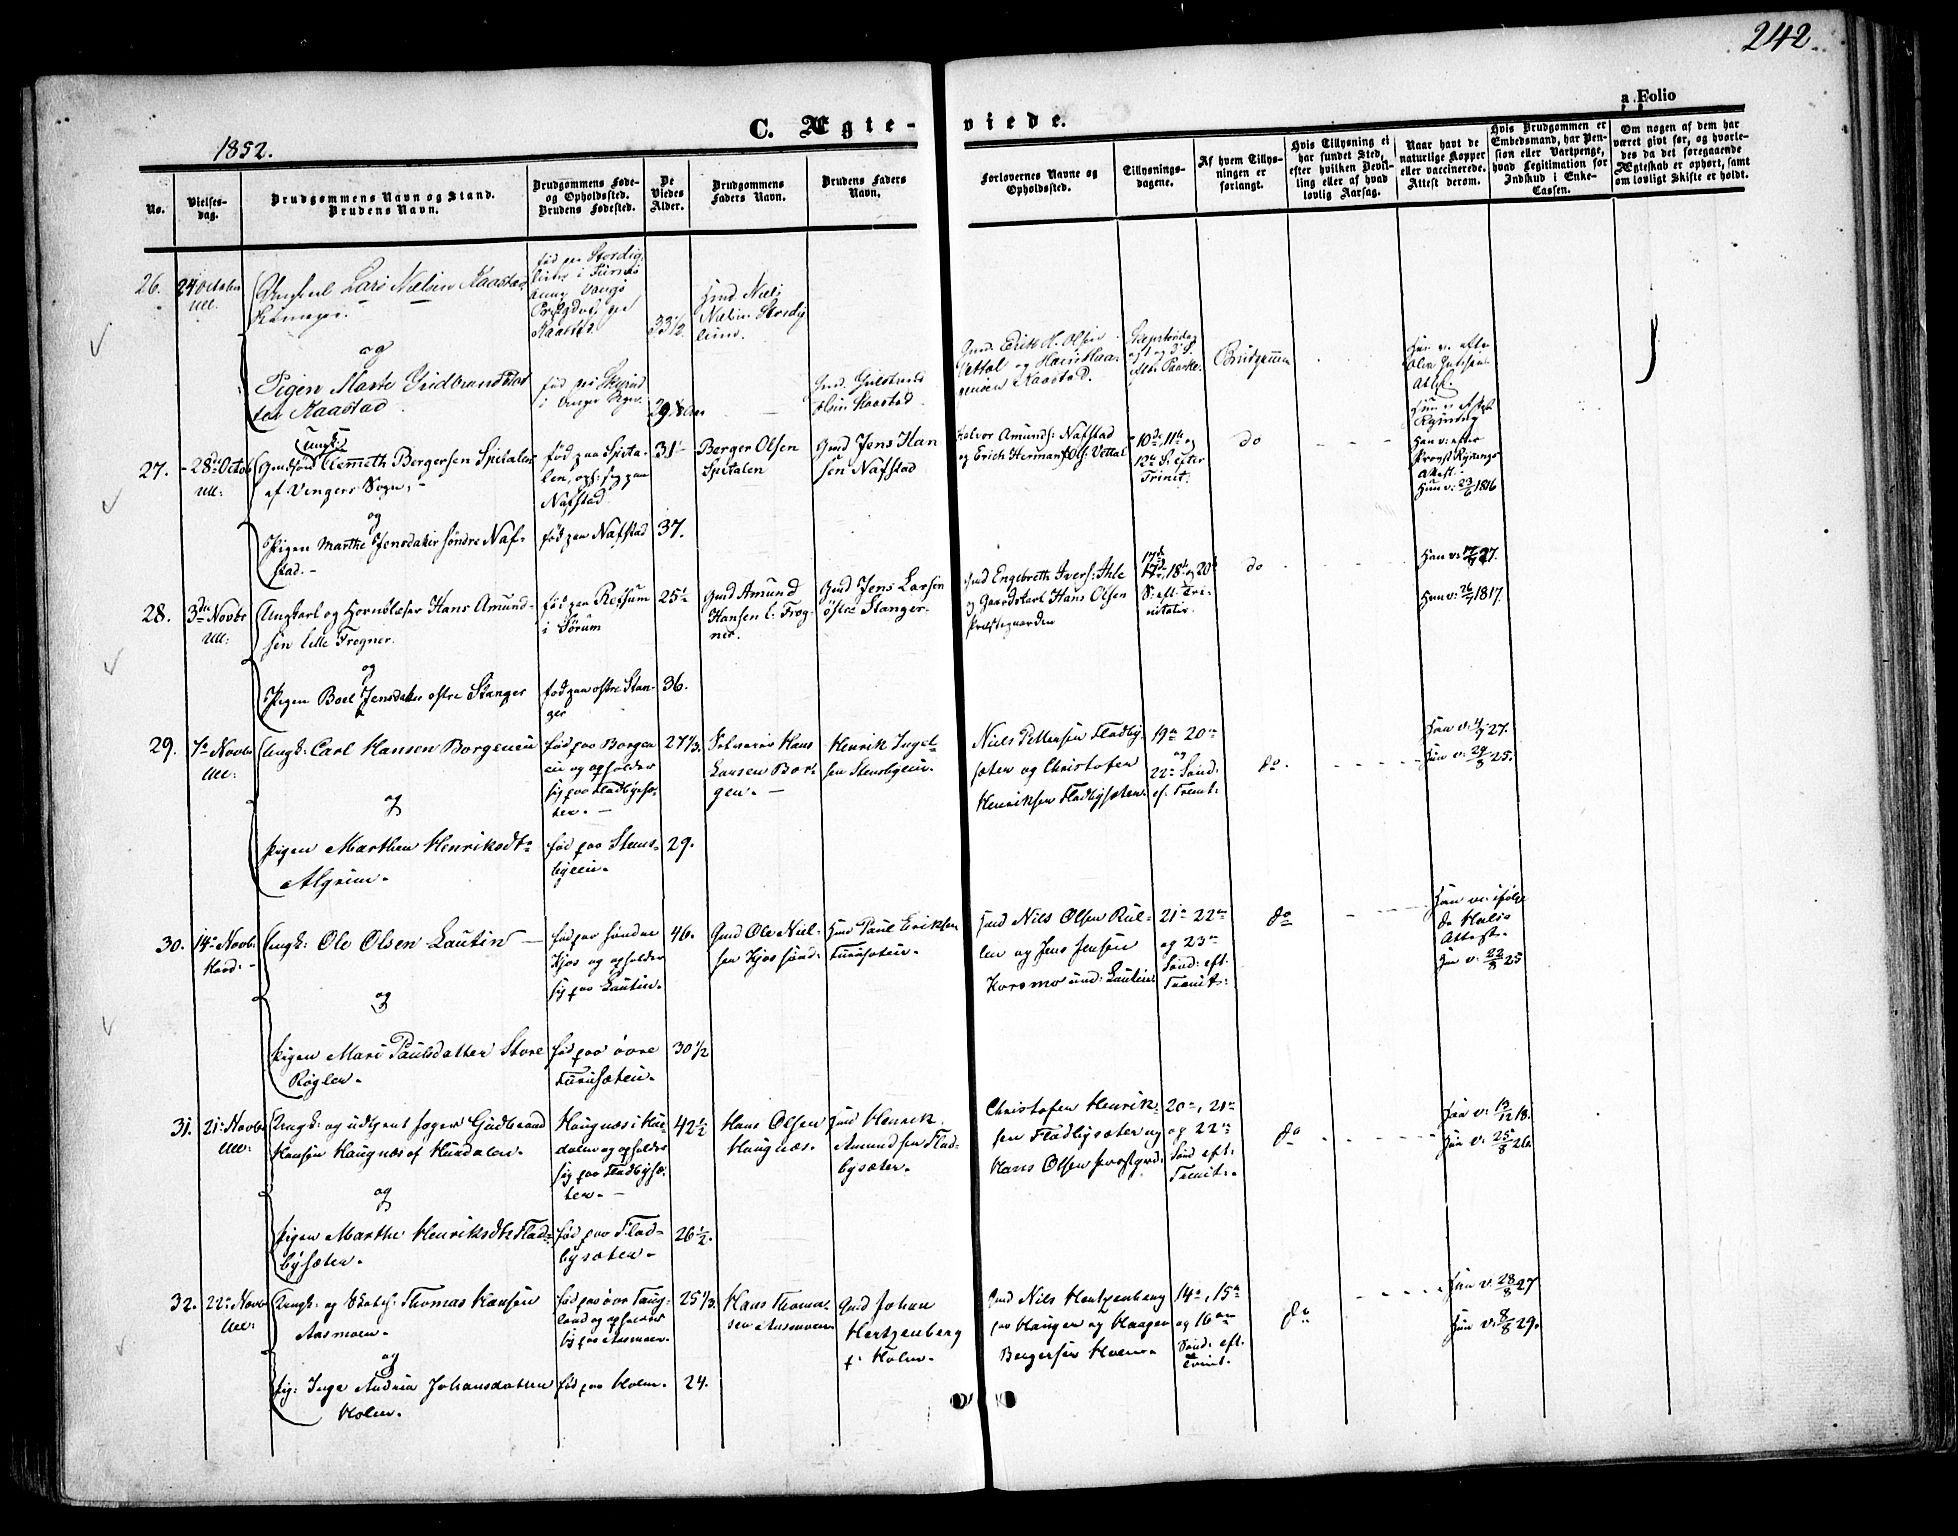 242
a Folio
C. Ægte-
viede.
1852.
No.
Vielses-
dag.
Brudgommens Navn og Stand.
Brudens Navn.
Brudgommens Føde-
og Opholdssted.
Brudens Fødested.
De
Viedes
Alder.
Brudgommens
Faders Navn.
Brudens Faders
Navn.
Forlovernes Navne og
Opholdssted.
Tillysnings-
dagene.
Af hvem Tillys-
ningen er
forlangt.
Hvis Tillysning ei
har fundet Sted,
efter hvilken Bevil-
ling eller af hvad
lovlig Aarsag.
Naar havt de
naturlige Kopper
eller vaccinerede.
Attest derom.
Hvis Brudgommen er
Embedsmand, har Pen-
sion eller Vartpenge,
hvad Legitimation for
Indskud i Enke-
Cassen.
Om nogen af dem har
været givt før, og hvorle-
des da det foregaaende
Ægteskab er ophørt, samt
om lovligt Skifte er holdt.
26.
24 October
Ull.
Lars Nielsen Kaastad
og
Pigen Marte Gudbrandsdat
ter Kaastad
33 1/2
Gmd. Niels
Nielsen
Gmd. Erik H. Olsen
Vettal og
Kaastad.
Brudgommen
27.
28de Octob
Ull:
Ungk:
Gmdsønd Clemmeth Bergersen Spitalen
af Vengers Sogn,
og
Pigen Marthe Jensdatter søndre Naf-
stad.
fød paa Spita-
len, oph: sig paa
Nafstad
fød paa Nafstad
31
37.
Berger Olsen
Spitalen
Gmd Jens Han
sen Nafstad
Halvor Amunds: Nafstad
og Erich Herman Ols: Vettal
10de, 11te og
12te S. efter
Trinit.
do
Han v: efter
Provst Rynings
Attest
Hun v: 23/6 1816
28.
3die Novbr
Ull:
Ungkarl og Hornblæser Hans Amund-
sen lille Frogner.
og
Pigen Boel Jensdatter østre Stanger
fød paa Refsum
i Sørum
fød paa østre Stan-
ger
25
36.
Gmd Amund
Hansen l: Frog-
ner.
Gmd Jens Larsen
østre Stanger.
Gmd Engebreth Ivers: Ihle
og Gaardskarl Hans Olsen
Præstegaarden
18de og 20de
S: eft. Tri-
nitatis.
do
Hun v: 1817.
29.
7de Novbr
Ull:
Ungk: Carl Hansen Borgenein
og
Pigen Marthea Henriksdtr
Algrim.
fød paa Borgen
ein og opholder
sig paa Fladbysæ-
ter.
fød paa Stens-
byein.
27 1/3.
29.
Hans
Larsen Bor-
gen.
Henrik Ingel-
sen Stensbyein.
Niels Pettersen Fladby-
sæter og Christofer
Henriksen Fladbysæter.
19de 20de
og
22de Sønd:
ef. Trinit:
do.
Han v: 4/7 27.
Hun v: 29/8 25.
30.
14de Novbr.
Hovd:
Ungk: Ole Olsen Lautin
og
Pigen Mari Paulsdatter Store
Røgler.
fød paa søndre
Kjos og opholder
sig paa Lautin.
fød paa øvre
Furusæten.
46.
30 1/2
Gmd Ole Niel-
sen Kjos sønd:
Gmd Paul Eriksen
Furusæten.
Gmd Nils Olsen Rul-
len og Jens Jensen
Koromo und: Lautin.
21de 22de
og 23de
Sønd: eft.
Trinit:
do
Attest.
Hun v: 22/8 25
31.
21de Novbr
Ull:
Ungk: og udtjent Jæger Gudbrand
Hansen Haugnæs af Hurdalen.
og
Pigen Marthe Henriksdtr Flad-
bysæter.
Haugnæs i Hur-
dalen og opholder
sig paa Fladbysæ-
ter.
fød paa Flad-
bysæter.
42 1/2
26 1/2.
Hans Olsen
Haugnæs.
Gmd Henrik
Amundsen Flad-
bysæter.
Christofer Henrik-
sen Fladbysæter og
Hans Olsen Præstgrd:
20de, 21de
og 22de
Sønd eft:
Trinit:.
do
Han v: 13/12 18.
Hun v: 25/8 26.
32.
22de Novbr
Ull:
Ungk: og Skols: Thomas Hansen
Aasmoen.
og
Pig: Inge Andrea Johansdatter
Holm.
fød paa øvre Taug-
land og opholder
sig paa Aasmoen.
fød paa Holm.
25 1/3.
24.
Hans Thoma-
sen Aasmoen
Gmd Johan
Hertzenberg
f. Holm.
Gmd Nils Hertzenberg
paa Hauger og Haagen
Bergersen Holm.
14de, 15de
og 16de
Sønd: eft.
Trinit.
do
Han v: 28/8 27
Hun v: 8/8 29.